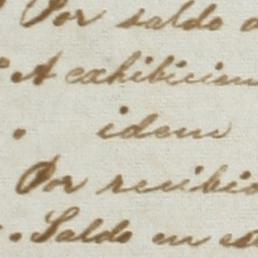 Por saldo
A exhibicion
idem
Por recibid
Saldo en es